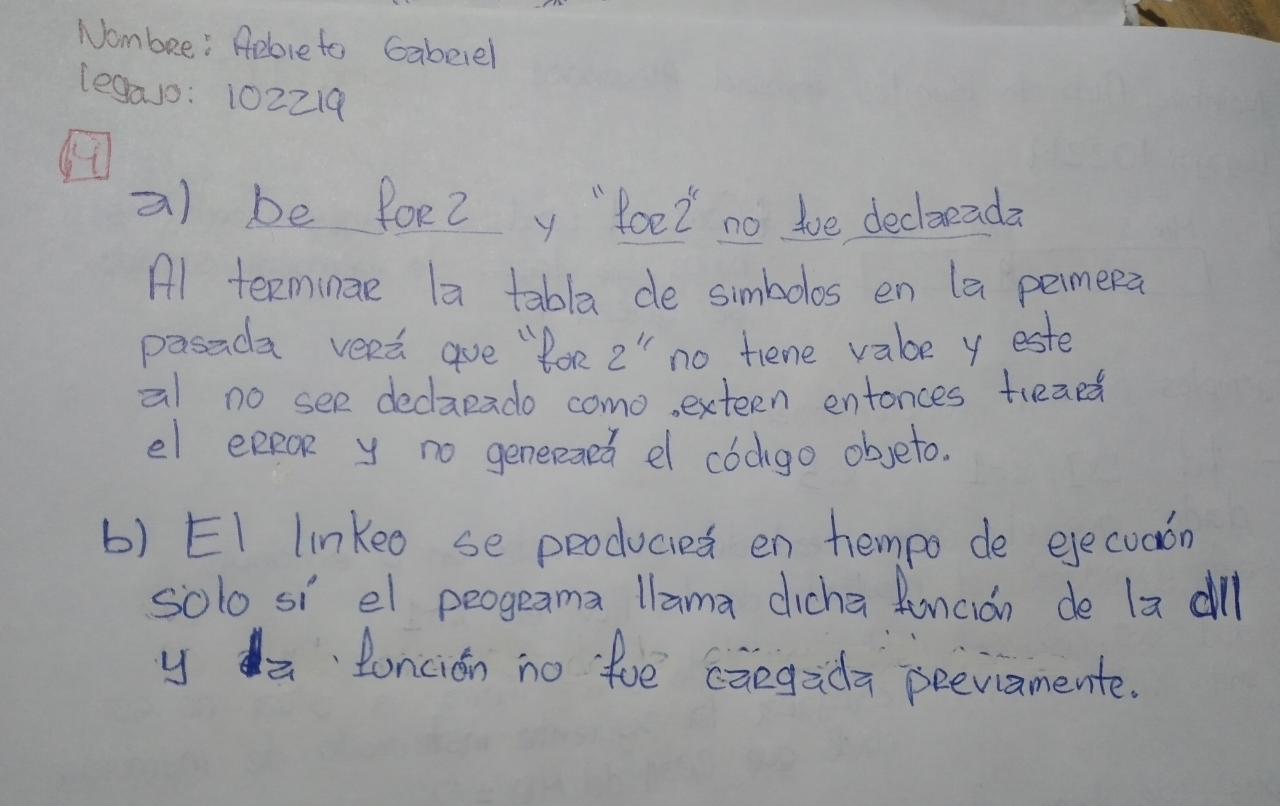 Nombre: Arbieto Gabriel
Legajo: 102219
4
a) be for2 y "for2" no fue declarada
Al terminar la tabla de simbolos en la primera
pasada verá que "for 2" no tiene valor y este
al no ser declarado como .extern entonces tirará
el error y no generará el código objeto.
b) El linkeo se producirá en tiempo de ejecución
solo sí el programa llama dicha función de la dll
y la función no fue cargada previamente.